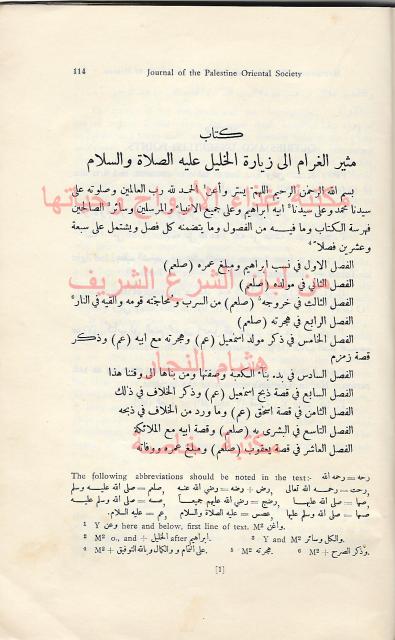 114 Journal of the Palestine Oriental Society
كتاب
مثير الغرام الى زيارة الخليل عليه الصلاة والسلام
بسم الله الرحمن الرحيم اللهم يسّر وأعن الحمد لله رب العالمين وصلوته على
سيدنا محمد وعلى سيدنا ابيه ابراهيم وعلى جميع الانبياء والمرسلين وسائر الصالحين
فهرسة الكتاب وما فيه من الفصول وما يتضمنه كل فصل ويشتمل على سبعة
وعشرين فصلا
الفصل الاول في نسب ابراهيم ومبلغ عمره (صلعم)
الفصل الثاني في مولده (صلعم)
الفصل الثالث في خروجه (صلعم) من السرب ومحاججته قومه والقيه في النار
الفصل الرابع في هجرته (صلعم)
الفصل الخامس في ذكر مولد اسمعيل (عم) وهجرته مع ابيه (عم) وذكر
قصة زمزم
الفصل السادس في بدء بناء الكعبة وصفتها ومن بناها الى وقتنا هذا
الفصل السابع في قصة ذبح اسمعيل (عم) وذكر الخلاف في ذلك
الفصل الثامن في قصة اسحق (عم) وما ورد من الخلاف في ذبحه
الفصل التاسع في البشرى به (صلعم) وقصة ابيه مع الملائكة
الفصل العاشر في قصة يعقوب (صلعم) ومبلغ عمره ووفاته
مكتبة غذاء الأرواح وجنتها
من لبان الشرع الشريف
هشام النجار
مكتبة خاصة
The following abbreviations should be noted in the text: رحه = رحمه الله
رحت = رحمه الله تعالى, رض + رضه = رضي الله عنه, صلعم = صلى الله عليه وسلم
صها = صلى الله عليها, رضج = رضي الله عليهم جميعا, صه = صلى الله عليه وسلم
صها = صلى الله وسلم عليها, عصس = عليه الصلاة والسلام, عم = عليه السلام.
1 Y وعن here and below, first line of text. M² واغن.
2 M² o., and + الخليل after ابراهيم. 3 Y and M² والكل وسائر.
4 M² + على التمام والكمال وبالله التوفيق. 5 M² هجرته. 6 M² + وذكر الصرح.
[1]